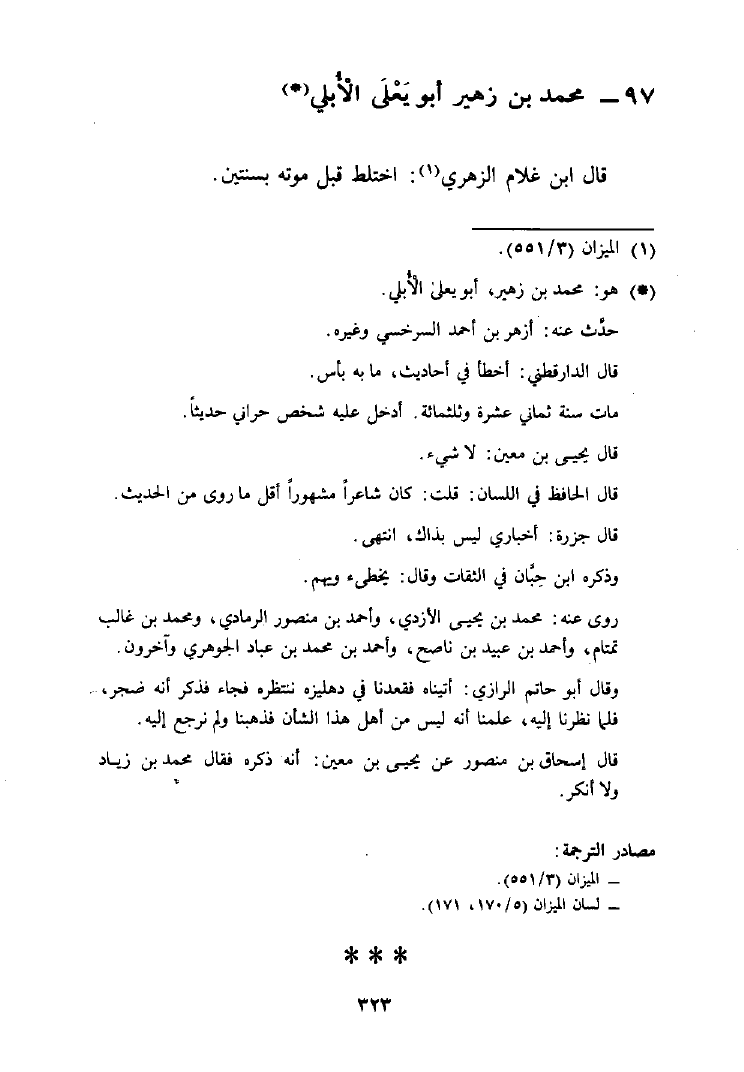 ٩٧ ــ محمد بن زهير أبو يَعْلَى الْأُبلي(*)
قال ابن غلام الزهري(١): اختلط قبل موته بسنتين.
(١) الميزان (٥٥١/٣).
(*) هو: محمد بن زهير، أبو يعلىٰ الْأُبلي.
حدَّث عنه: أزهر بن أحمد السرخسي وغيره.
قال الدارقطني: أخطأ في أحاديث، ما به بأس.
مات سنة ثماني عشرة وثلثمائة. أدخل عليه شخص حراني حديثاً.
قال يحيى بن معين: لا شيء.
قال الحافظ في اللسان: قلت: كان شاعراً مشهوراً أقل ما روى من الحديث.
قال جزرة: أخباري ليس بذاك، انتهى.
وذكره ابن حِبَّان في الثقات وقال: يخطىء ويهم.
روى عنه: محمد بن يحيى الأزدي، وأحمد بن منصور الرمادي، ومحمد بن غالب
تمتام، وأحمد بن عبيد بن ناصح، وأحمد بن محمد بن عباد الجوهري وآخرون.
وقال أبو حاتم الرازي: أتيناه فقعدنا في دهليزه ننتظره فجاء فذكر أنه ضجر،
فلما نظرنا إليه، علمنا أنه ليس من أهل هذا الشأن فذهبنا ولم نرجع إليه.
قال إسحاق بن منصور عن يحيى بن معين: أنه ذكره فقال محمد بن زياد
ولا أنكر.
مصادر الترجمة:
ــ الميزان (٥٥١/٣).
ــ لسان الميزان (١٧٠/٥، ١٧١).
* * *
٣٢٣